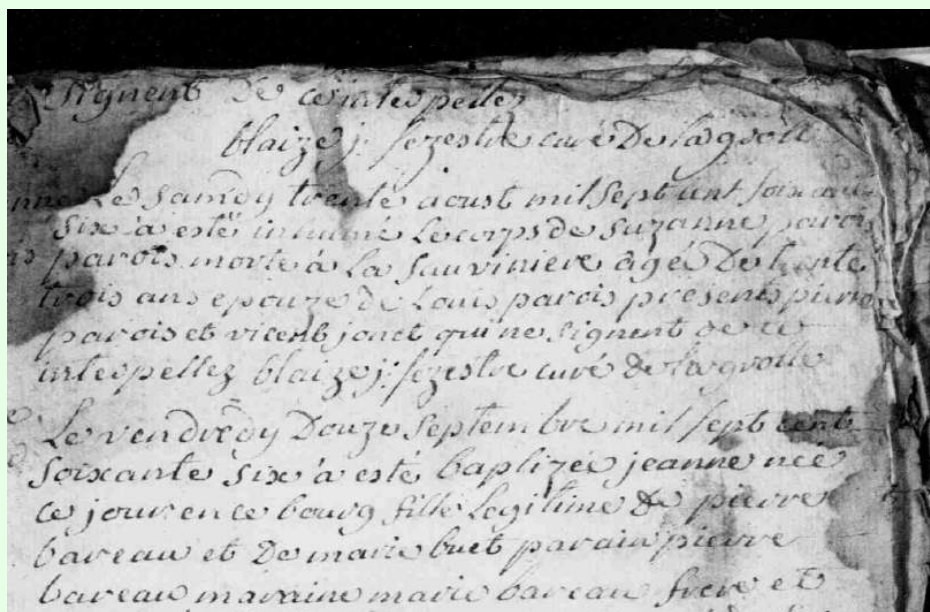 signent De ce interpellez
blaize j: sezestre curé De lagrolle
Le samdy trente aoust mil sept cent soixante
six à esté inhumé Le corps de suzanne parois
parois morte à La sauviniere âgé De trente
trois ans epouze de Louis parois presents pierre
parois et vicent jouet qui ne signent de ce
interpellez blaize j: sezestre curé de lagrolle
Le vendredy Douze septembre mil sept cent
soixante six à esté baptizée jeanne née
ce jour en ce bourg fille Legitime de pierre
bareau et De marie buet parain pierre
bareau maraine marie bareau frere et